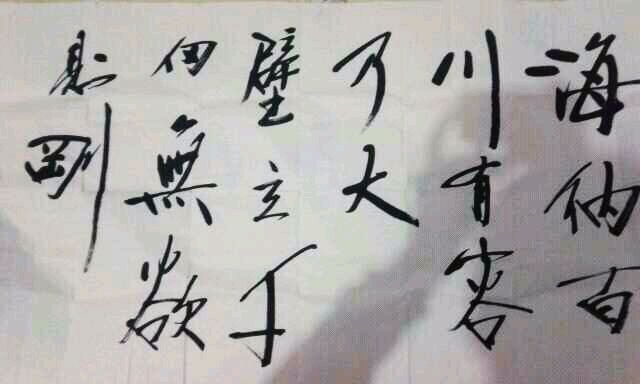 海纳百
川有容
乃大
壁立千
仞無欲
則剛